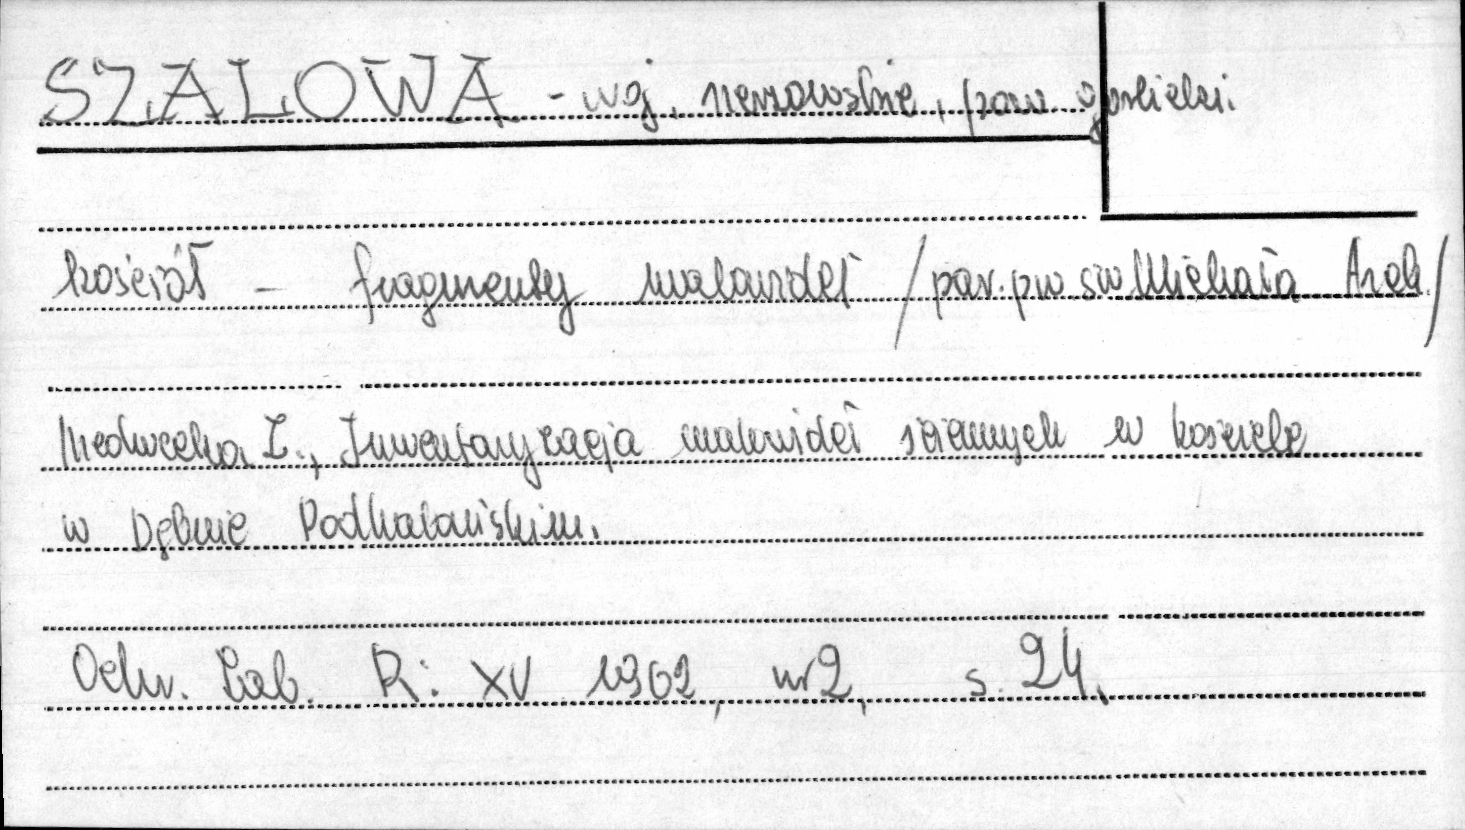 SZALOWA - woj. rzeszowskie, pow gorlicki.
kościół - fragmenty malowideł /par. pw św Michała Arch./
Medwecka Z., Inwentaryzacja malowideł ściennych w kościele
w Dębnie Podhalańskim.
Ochr. Zab. R: XV 1962, nr 2, s. 24.